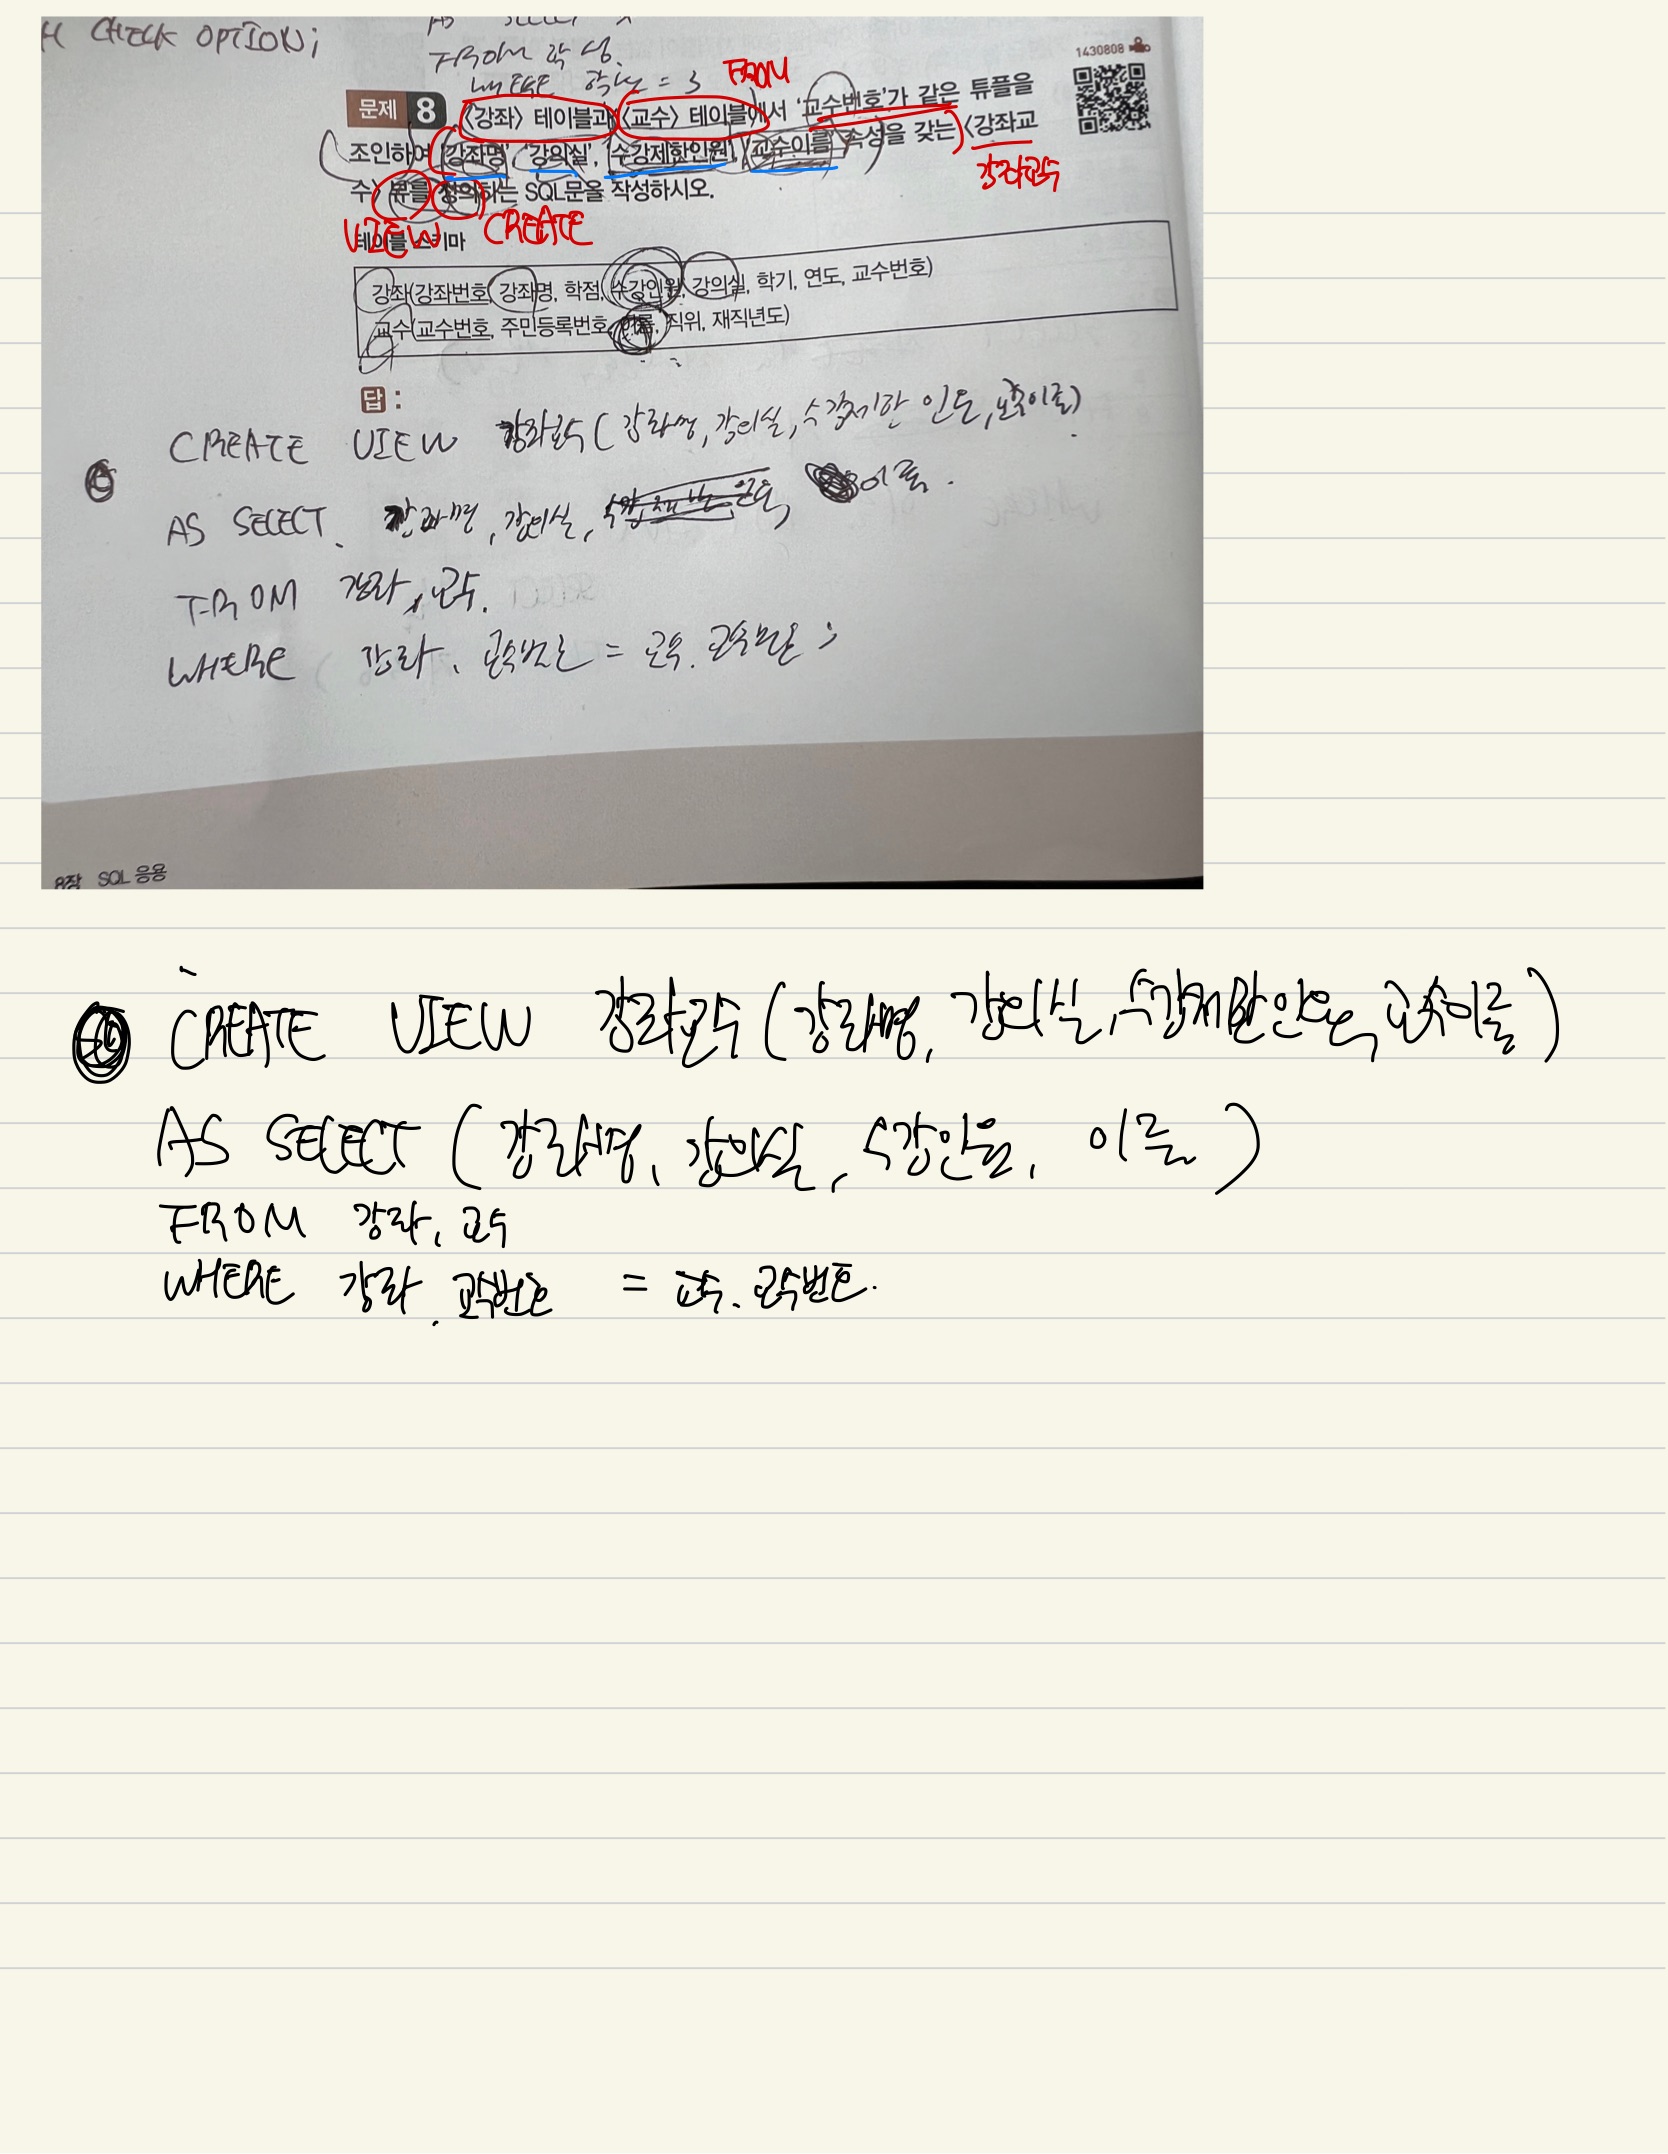 H CHECK OPTION;
AS SELECT *
FROM 학생
WHERE 학년 = 3
FROM
1430808
문제 8 〈강좌〉 테이블과 〈교수〉 테이블에서 '교수번호'가 같은 튜플을
조인하여 '강좌명', '강의실', '수강제한인원', '교수이름' 속성을 갖는 〈강좌교
강좌교수
수〉 뷰를 정의하는 SQL문을 작성하시오.
VIEW CREATE
테이블 스키마
강좌(강좌번호, 강좌명, 학점, 수강인원, 강의실, 학기, 연도, 교수번호)
교수(교수번호, 주민등록번호, 이름, 직위, 재직년도)
답 :
CREATE VIEW 강좌교수(강좌명, 강의실, 수강제한인원, 교수이름)
AS SELECT 강좌명, 강의실, 이름
FROM 강좌, 교수
WHERE 강좌.교수번호 = 교수.교수번호;
8장 SQL 응용
CREATE VIEW 강좌교수(강좌명, 강의실, 수강제한인원, 교수이름)
AS SELECT (강좌명, 강의실, 수강인원, 이름)
FROM 강좌, 교수
WHERE 강좌.교수번호 = 교수.교수번호.